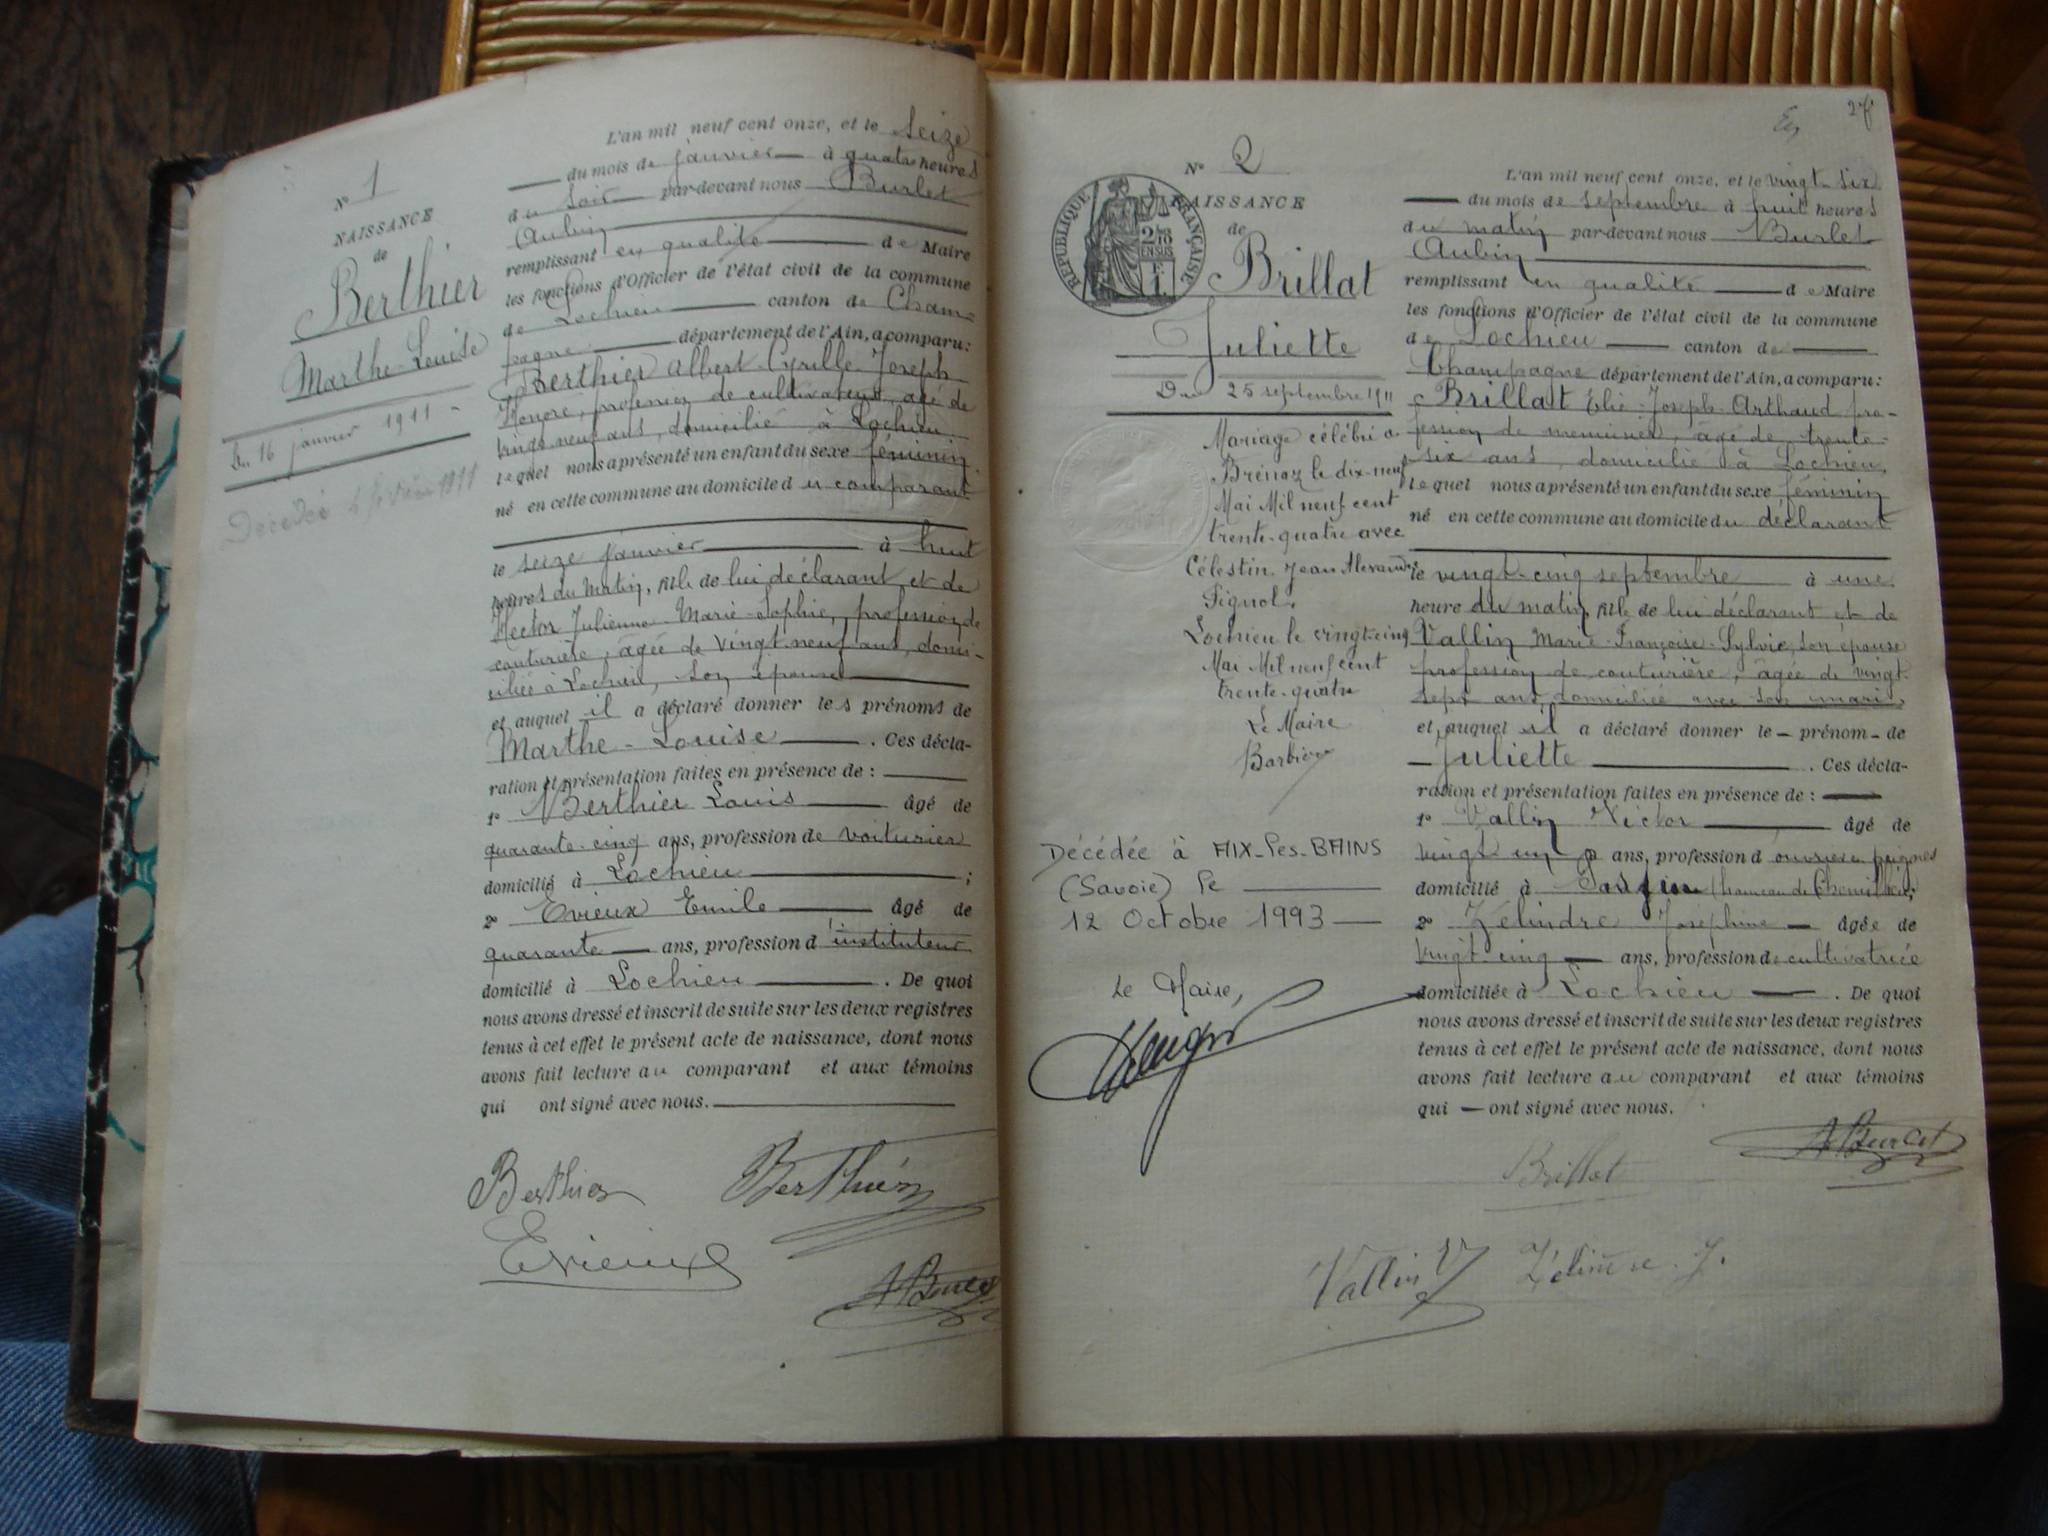 N° 1
NAISSANCE
de
Berthier
Marthe-Louise
Du 16 janvier 1911
Décédée février 1911
L'an mil neuf cent onze, et le seize
du mois de janvier à quatre heures
du soir par-devant nous Burlet
Aubin
remplissant en qualité de Maire
les fonctions d'Officier de l'état civil de la commune
de Lochieu canton de Cham-
pagne département de l'Ain, a comparu:
Berthier Albert-Cyrille-Joseph
Honoré, profession de cultivateur, âgé de
vingt-neuf ans, domicilié à Lochieu
lequel nous a présenté un enfant du sexe féminin
né en cette commune au domicile du comparant
le seize janvier à huit
heures du matin, fille de lui déclarant et de
Hector Julienne-Marie-Sophie, profession de
couturière, âgée de vingt-neuf ans, domi-
ciliée à Lochieu, son épouse
et auquel il a déclaré donner les prénoms de
Marthe-Louise. Ces décla-
ration et présentation faites en présence de :
1° Berthier Louis âgé de
quarante-cinq ans, profession de voiturier
domicilié à Lochieu ;
2° Evieux Emile âgé de
quarante ans, profession d'instituteur
domicilié à Lochieu. De quoi
nous avons dressé et inscrit de suite sur les deux registres
tenus à cet effet le présent acte de naissance, dont nous
avons fait lecture au comparant et aux témoins
qui ont signé avec nous.
Berthier Berthier
Evieux
A Burlet
27
N° 2
NAISSANCE
de
Brillat
Juliette
Du 25 septembre 1911
RÉPUBLIQUE FRANÇAISE
2/10 EN SUS
Mariage célébré à
Brénaz le dix-neuf
Mai Mil neuf cent
trente-quatre avec
Célestin Jean Alexandre
Pignol.
Lochieu le vingt-cinq
Mai Mil neuf cent
trente-quatre
Le Maire
Barbier
Décédée à AIX-les-BAINS
(Savoie) le
12 Octobre 1993
Le Maire,
L'an mil neuf cent onze, et le vingt-six
du mois de septembre à huit heures
du matin par-devant nous Burlet
Aubin
remplissant en qualité de Maire
les fonctions d'Officier de l'état civil de la commune
de Lochieu canton de
Champagne département de l'Ain, a comparu:
Brillat Elie-Joseph-Arthaud pro-
fession de menuisier, âgé de trente-
six ans, domicilié à Lochieu,
lequel nous a présenté un enfant du sexe féminin
né en cette commune au domicile du déclarant
le vingt-cinq septembre à une
heure du matin, fille de lui déclarant et de
Vallin Marie-Françoise-Sylvie, son épouse
profession de couturière, âgée de vingt-
sept ans, domiciliée avec son mari,
et auquel il a déclaré donner le prénom de
Juliette. Ces décla-
ration et présentation faites en présence de :
1° Vallin Victor âgé de
vingt un ans, profession d'ouvrier en peignes
domicilié à (hameau de ;
2° Zélindre Joséphine âgée de
vingt-cinq ans, profession de cultivatrice
domiciliée à Lochieu. De quoi
nous avons dressé et inscrit de suite sur les deux registres
tenus à cet effet le présent acte de naissance, dont nous
avons fait lecture au comparant et aux témoins
qui ont signé avec nous.
A Burlet
Brillat
Vallin V Zélindre. J.